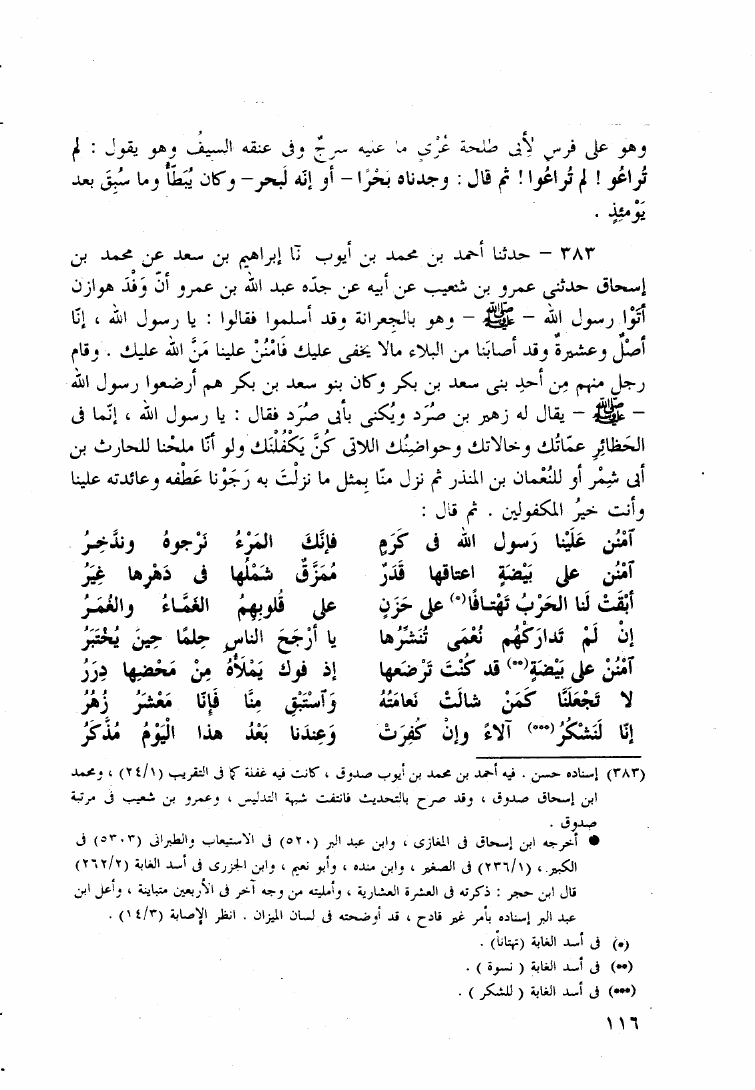 وهو على فرس لأبى طلحة عُرْىٍ ما عليه سرجٌ وفى عنقه السيفُ وهو يقول : لم
تُراعُو ! لم تُراعُوا ! ثم قال : وجدناه بَحْرًا – أو إنّه لَبحر – وكان يُبَطَّأُ وما سُبِقَ بعد
يَوْمئِذٍ .
٣٨٣ – حدثنا أحمد بن محمد بن أيوب نَا إبراهيم بن سعد عن محمد بن
إسحاق حدثنى عمرو بن شعيب عن أبيه عن جدّه عبد الله بن عمرو أنّ وَفْدَ هوازن
أَتَوْا رسول الله – ﷺ – وهو بالجعرانة وقد أسلموا فقالوا : يا رسول الله ، إنّا
أصْلٌ وعشيرةٌ وقد أصابَنا من البلاء مالا يخفى عليك فَامْنُنْ علينا مَنَّ الله عليك . وقام
رجل منهم مِن أحدِ بنى سعد بن بكر وكان بنو سعد بن بكر هم أرضعوا رسول الله
– ﷺ – يقال له زهير بن صُرَد ويُكنى بأبى صُرَد فقال : يا رسول الله ، إنّما فى
الحَظائرِ عمّاتُك وخالاتك وحواضِنُك اللاتى كُنَّ يَكْفُلْنَك ولو أنّا ملحْنا للحارث بن
أبى شِمْر أو للنُعْمان بن المنذر ثم نزل منّا بِمثل ما نزلْتَ به رَجَوْنا عَطْفه وعائدته علينا
وأنت خيرُ المكفولين . ثم قال :
آمْنُن عَلَيْنا رَسول الله فى كَرَمٍ فإنَّكَ المَرْءُ نَرْجوهُ وندَّخِرُ
آمْنُن على بَيْضَةٍ اعتاقها قَدَرٌ مُمَزَّقٌ شَمْلُها فى دَهْرِها غِيَرُ
أبْقَتْ لَنا الحَرْبُ تَهْتافًا(*) على حَزَنٍ على قُلوبِهِمُ الغَمَّاءُ والغُمَرُ
إنْ لَمْ تَدارَكْهُم نُعْمَى تُنَشِّرُها يا أرْجَحَ الناسِ حِلمًا حِينَ يُخْتَبَرُ
آمْنُنْ على بَيْضَةٍ(**) قد كُنْتَ تَرْضَعها إذ فوكَ يَمْلَأُهُ مِنْ مَحْضِها دِرَرُ
لا تَجْعَلَنَّا كَمَنْ شالَتْ نَعامَتُهُ وَآسْتَبْقِ مِنَّا فَإنّا مَعْشَرٌ زُهُرُ
إنّا لَنَشْكُرُ(***) آلاءً وإنْ كُفِرَتْ وَعِندَنا بَعْدُ هذا الْيَوْمُ مُدَّكَرُ
(٣٨٣) إسناده حسن . فيه أحمد بن محمد بن أيوب صدوق ، كانت فيه غفلة كما فى التقريب (٢٤/١) ، ومحمد
ابن إسحاق صدوق ، وقد صرح بالتحديث فانتفت شبهة التدليس ، وعمرو بن شعيب فى مرتبة
صدوق .
● أخرجه ابن إسحاق فى المغازى ، وابن عبد البر (٥٢٠) فى الاستيعاب والطبرانى (٥٣٠٣) فى
الكبير ، (٢٣٦/١) فى الصغير ، وابن منده ، وأبو نعيم ، وابن الجزرى فى أسد الغابة (٢٦٢/٢)
قال ابن حجر : ذكرته فى العشرة العشارية ، وأمليته من وجه آخر فى الأربعين متباينة ، وأعل ابن
عبد البر إسناده بأمر غير قادح ، قد أوضحته فى لسان الميزان . انظر الإصابة (١٤/٣) .
(*) فى أسد الغابة (تهتاناً) .
(**) فى أسد الغابة ( نسوة ) .
(***) فى أسد الغابة ( للشكر ) .
١١٦